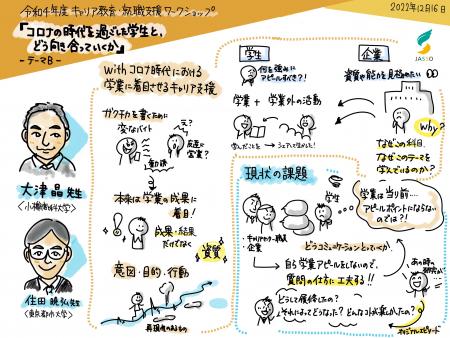 令和4年度 キャリア教育・就職支援ワークショップ
2022年12月16日
「コロナの時代を過ごした学生と、
どう向き合っていくか」
-テーマB-
JASSO
withコロナ時代における
学業に着目させるキャリア支援
ガクチカを書くために
変なバイト
え?
衝撃
本来は学業の成果に
着目!
成果・結果
だけでなく
資質
意図・目的・行動
再現性のあるもの
大津 晶 先生
〈小樽商科大学〉
住田 曉弘 先生
〈東京都市大学〉
学生
何を強みに
アピールすべき?!
学業 + 学業外の活動
学んだことを → シェアして生かした!
企業
資質や能力を見極めたい
why?
なぜこの科目、
なぜこのテーマを
学んでいるのか?
現状の課題
学生
キャリアセンター職員
企業
学業は当り前....
アピールポイントにならない
のでは?!
どうコミュニケーションとっていくか
自ら学業アピールをしないので、
質問の仕方に工夫する!!
どうして履修したの?
それによってどうなった?どんなコトが楽しかった?
あの時、